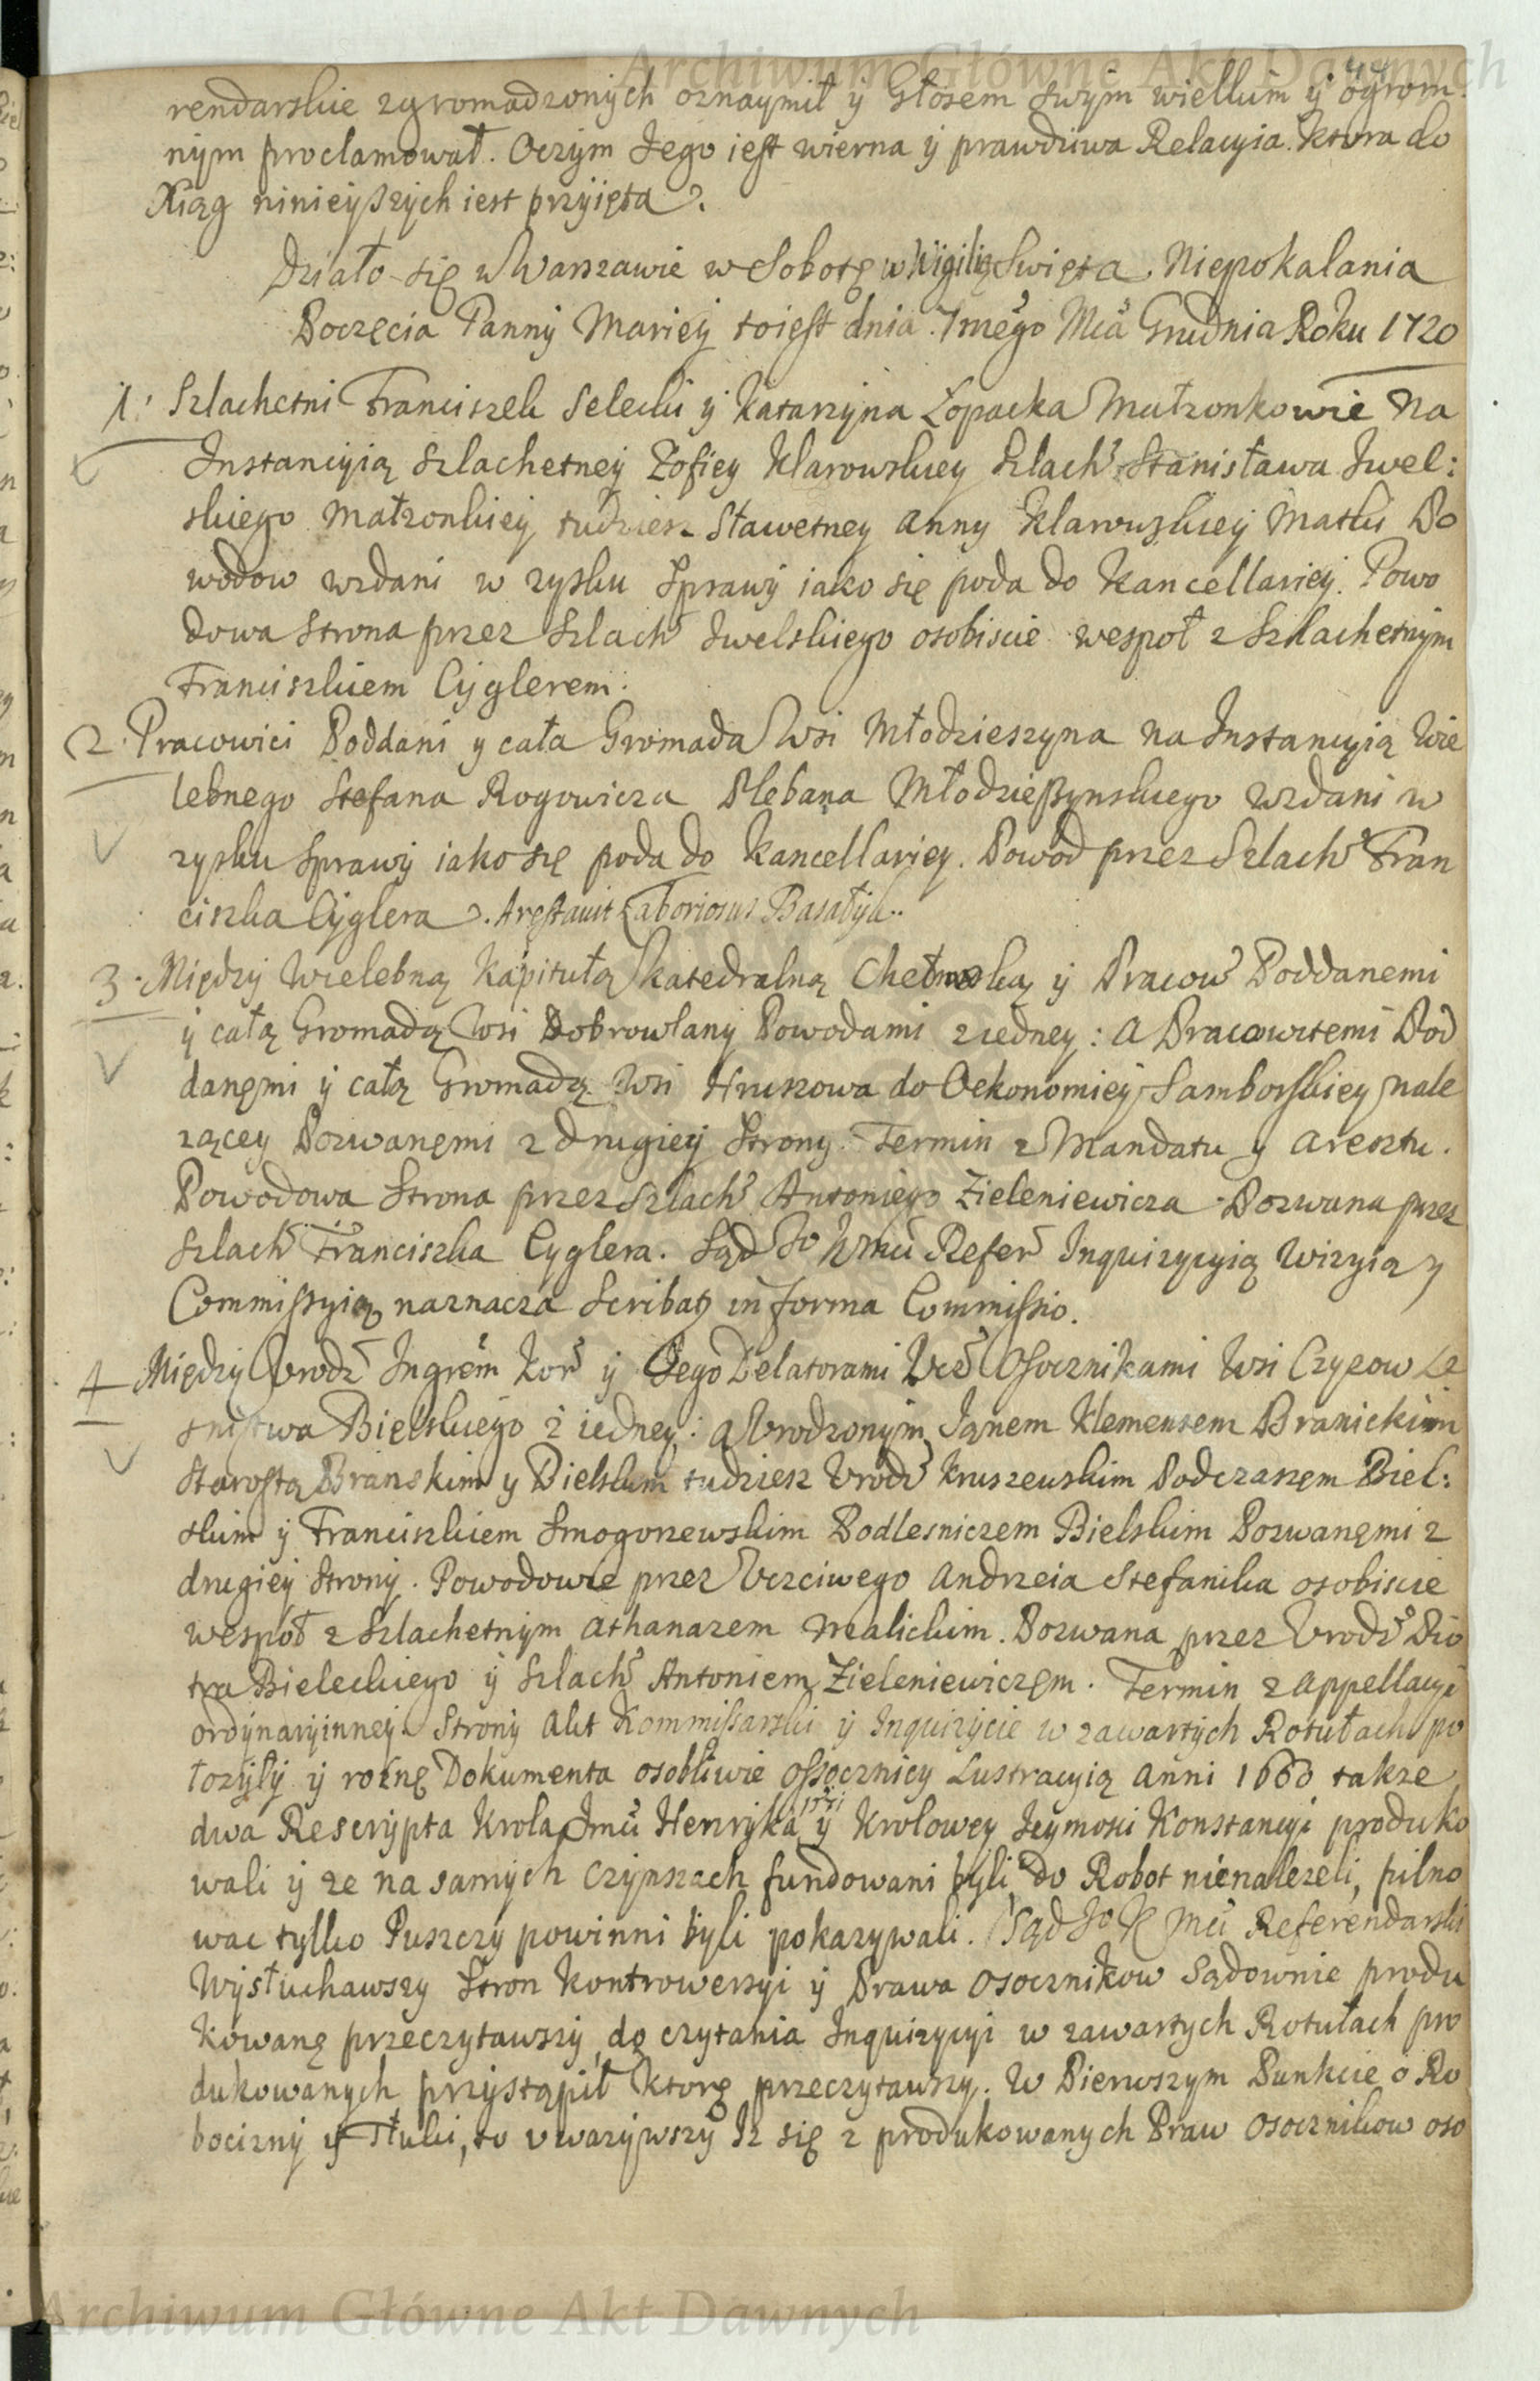 Archiwum Główne Akt Dawnych
44
rendarskie zgromadzonÿch oznaÿmił ÿ Głosem swÿm wielkim ÿ ogrom
nÿm proclamował. Oczÿm Jego iest wierna ÿ prawdziwa Relacyia. Ktora do
Xiąg ninieÿszÿch iest przÿięta.
Działo się w Warszawie w Sobotę w Wigilią Swięta Niepokalania
Poczęcia Pannÿ Marieÿ toiest dnia 7mego Mca Grudnia Roku 1720
1. Szlachetni Franciszek Selecki ÿ Katarzÿna Łopacka Małzonkowie Na
Instancÿią Szlachetneÿ Zofiey Klarowskiey Szlach Stanisława Iwel:
skiego Małzonkieÿ tudziesz Sławetney Anny Klarowskieÿ Matki Po
wodow wzdani w zysku Sprawÿ iako się poda do Kancellarieÿ. Powo
dowa Strona przez Szlach Iwelskiego osobiscie wespoł z Szlachetnÿm
Franciszkiem Cÿglerem.
2. Pracowici Poddani y cała Gromada Wsi Młodzieszyna na Instancyią Wie
lebnego Stefana Rogowicza Plebana Młodzieszynskiego wzdani w
zysku Sprawÿ iako się poda do Kancellariey. Powod przez Szlach Fran
ciszka Cÿglera. Arestavit Laboriosus Basałÿk..
3. Międzÿ Wielebną Kapitułą Katedralną Chełmską ÿ Pracow Poddanemi
ÿ całą Gromadą Wsi Dobrowlanÿ Powodami z iedneÿ: a Pracowitemi Pod
danęmi ÿ całą Gromadą Wsi Hruszowa do Oekonomieÿ Samborskiey nale
zącey Pozwanęmi z drugieÿ Strony. Termin z Mandatu y Aresztu.
Powodowa Strona przez Szlach Antoniego Zieleniewicza Pozwana przez
Szlach Franciszka Cyglera. Sąd Jo Kmci Refer Inquizycyią Wizyią y
Commissyią naznacza Scribat in forma Commissio.
4 Międzÿ Urodz Ingrem Kor ÿ Jego Delatorami Ucc Osocznikami Wsi Czyzow Le
snistwa Bielskiego z iedneÿ: a Urodzonÿm Janem Klemensem Branickim
Starostą Branskim y Bielskim tudziesz Urodz Kruszewskim Podczaszem Biel:
skim ÿ Franciszkiem Smogorzewskim Podlesniczem Bielskim Pozwanęmi z
drugieÿ Stronÿ. Powodowie przez Uczciwego Andrzeia Stefanika osobiscie
wespół z Szlachetnÿm Athanazem Malickim. Pozwana przez Urodz Pio
tra Bieleckiego ÿ Szlach Antoniem Zieleniewiczęm. Termin z Appellacyi
ordÿnaryinneÿ. Stronÿ Akt Kommissarski ÿ Inquizycie w zawartÿch Rotułach po
łozÿłÿ ÿ roznę Dokumenta osobliwie Ossocznicy Lustracyią Anni 1660 takze
dwa Rescrÿpta Krola Jmci Henrÿka ÿ Krolowey Jeymosci Konstancyi produko
wali ÿ ze na samÿch Czÿnszach fundowani bÿli do Robot nienalezeli, pilno
wac tylko Puszczÿ powinni bÿli pokazywali. Sąd Jo K Mci Referendarski
Wÿsłuchawszy Stron Kontrowersyi ÿ Prawa Osocznikow Sądownie produ
kowanę przeczytawszÿ, do czytania Inquizycyi w zawartych Rotułach pro
dukowanych przÿstąpił Ktorę przeczytawszy. W Pierwszym Punkcie o Ro
bociznÿ ÿ Tłuki, to uwazÿwszÿ Iz się z produkowanych Praw Osocznikow oso
Archiwum Główne Akt Dawnych